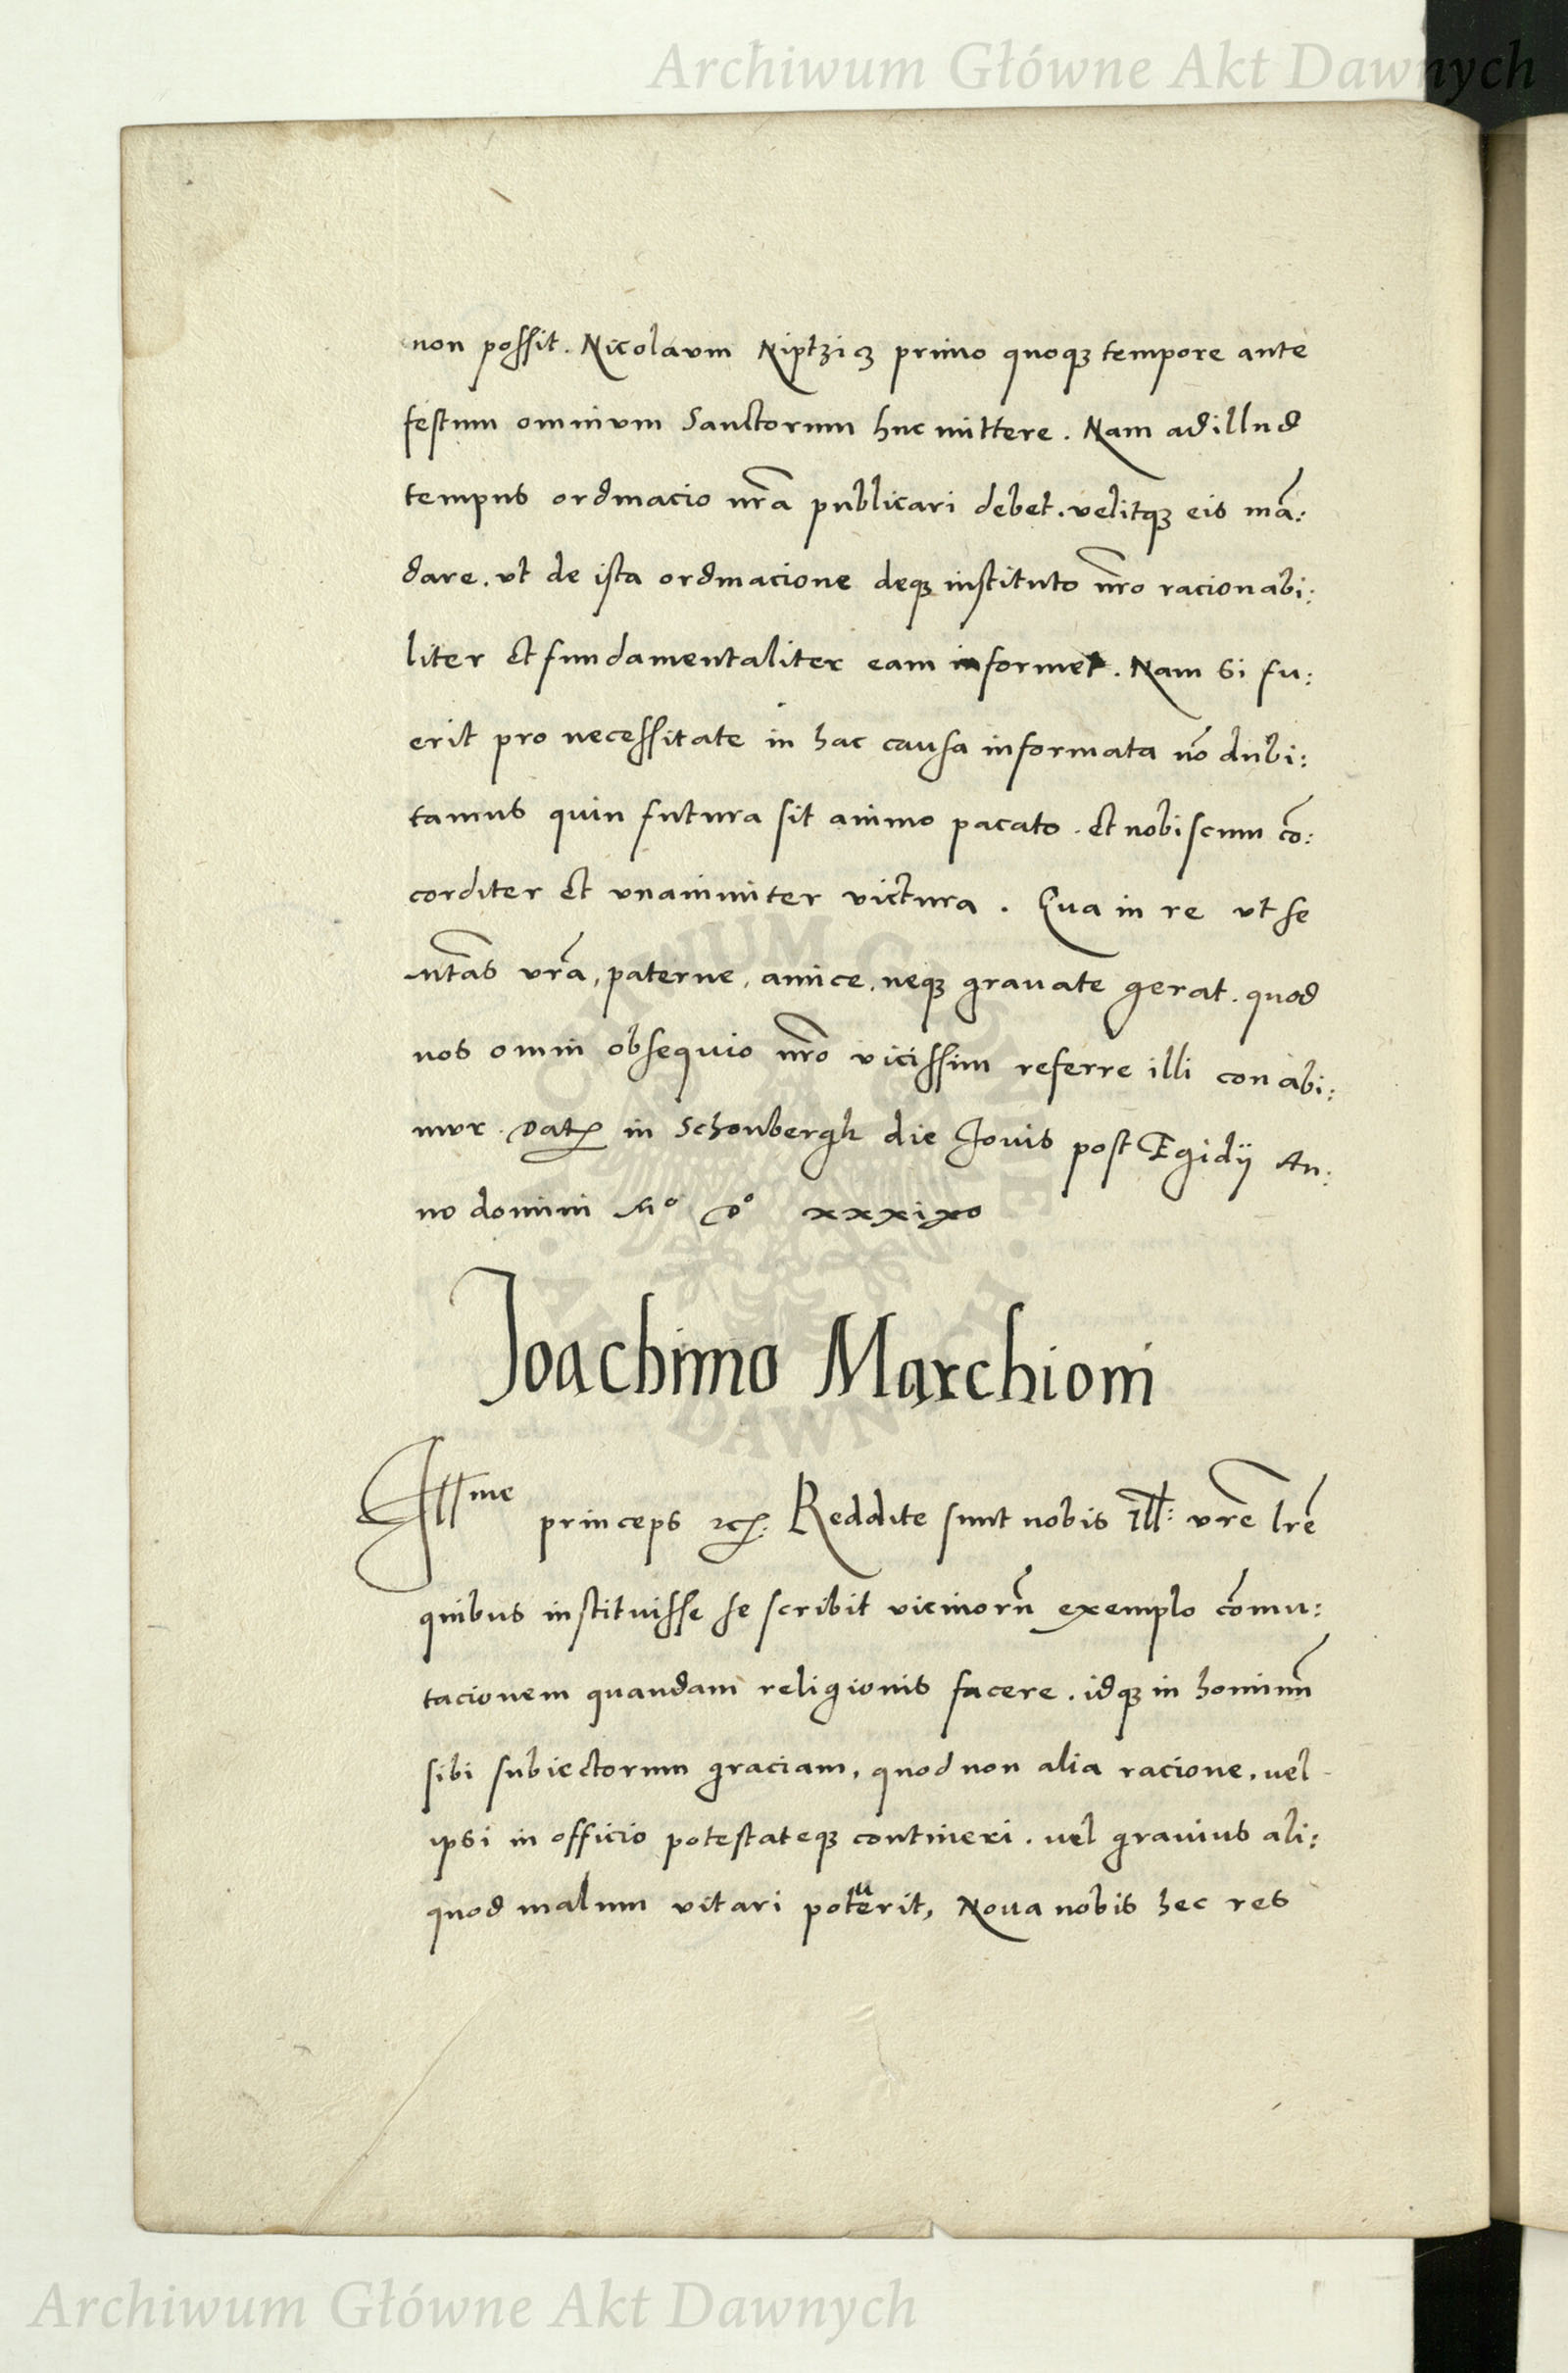 Archiwum Główne Akt Dawnych
non possit. Nicolaum Niptzicz primo quoqz tempore ante
festum omnium Sanctorum huc mittere. Nam ad illud
tempus ordinacio nr̃a publicari debet. velitqz eis mã:
dare. vt de ista ordinacione deqz instituto nr̃o racionabi:
liter et fundamentaliter eam informet. Nam si fu:
erit pro necessitate in hac causa informata nõ dubi:
tamus quin futura sit animo pacato. et nobiscum cõ:
corditer et vnanimiter victura. Qua in re vt se
Mtas vrã, paterne, amice, neqz grauate gerat. quod
nos omni obsequio nr̃o vicissim referre illi conabi:
mur. Dat in Schonbergk die Jouis post Egidij An:
no domini Mº Dº xxxixo
Joachimo Marchioni
Illme princeps etc. Reddite sunt nobis Ill: vrẽ lrẽ
quibus instituisse se scribit vicinorũ exemplo cõmu:
tacionem quandam religionis facere. idqz in hominũ
sibi subiectorum graciam, quod non alia racione, vel
ipsi in officio potestateqz contineri. vel grauius ali:
quod malum vitari potuerit, Noua nobis hec res
ARCHIWUM GŁÓWNE AKT DAWNYCH
Archiwum Główne Akt Dawnych